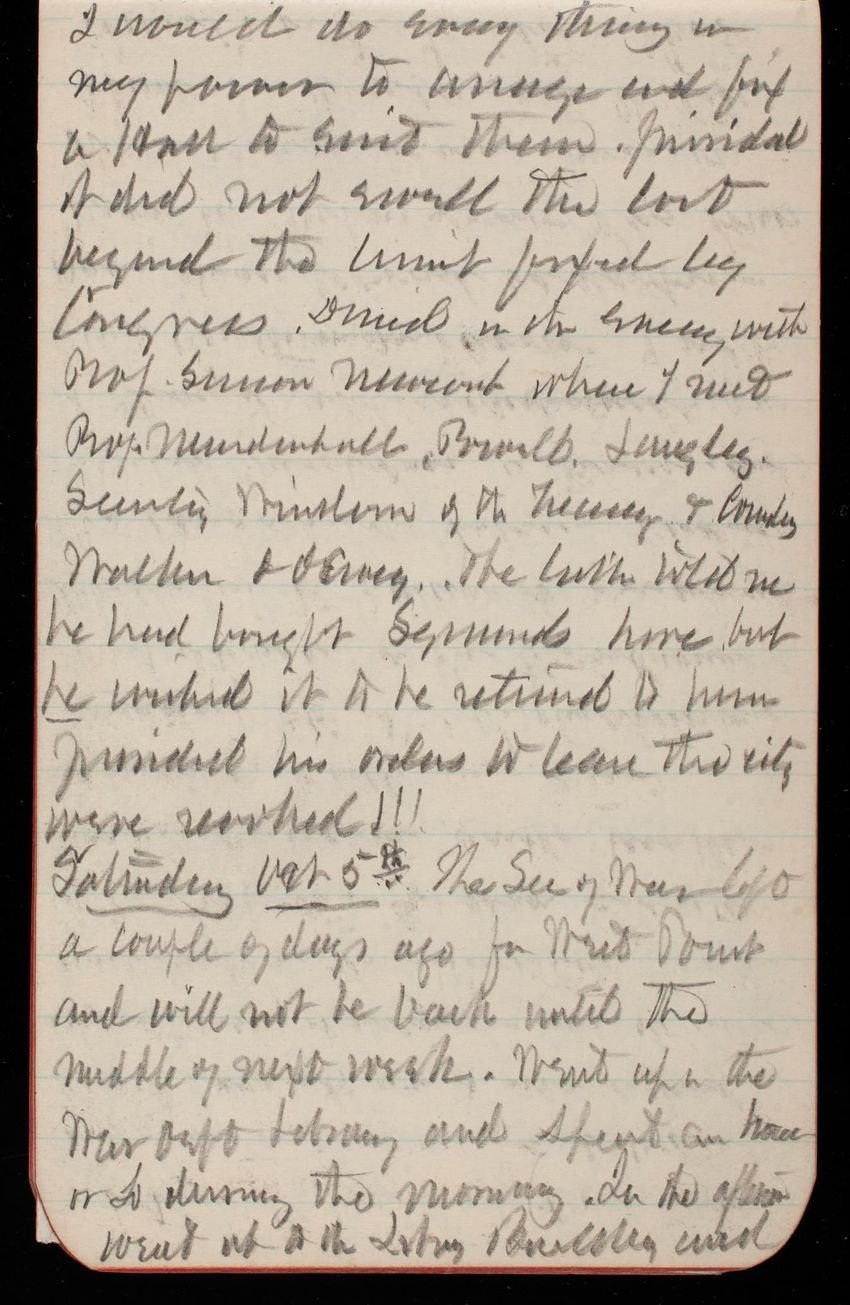 I would do every thing in
my power to arrange and fix
a Hall to suit them. provided
it did not swell the cost
beyond the limit fixed by
Congress. Dined in the evening with
Prof. Simon Newcomb where I met
Prof. Mendenhall, Powell, Langley.
Secrety Windom of the Treasury & Comdrs
Walker & Dewey. The latter told me
he had bought Symonds horse, but
he wished it to be returned to him
provided his orders to leave the city
were revoked!!!
Saturday Oct 5th. The Sec of War left
a couple of days ago for West Point
and will not be back until the
middle of next week. Went up in the
War Dept Library and spent an hour
or so during the morning. In the afternoon
went up to the Library Building and